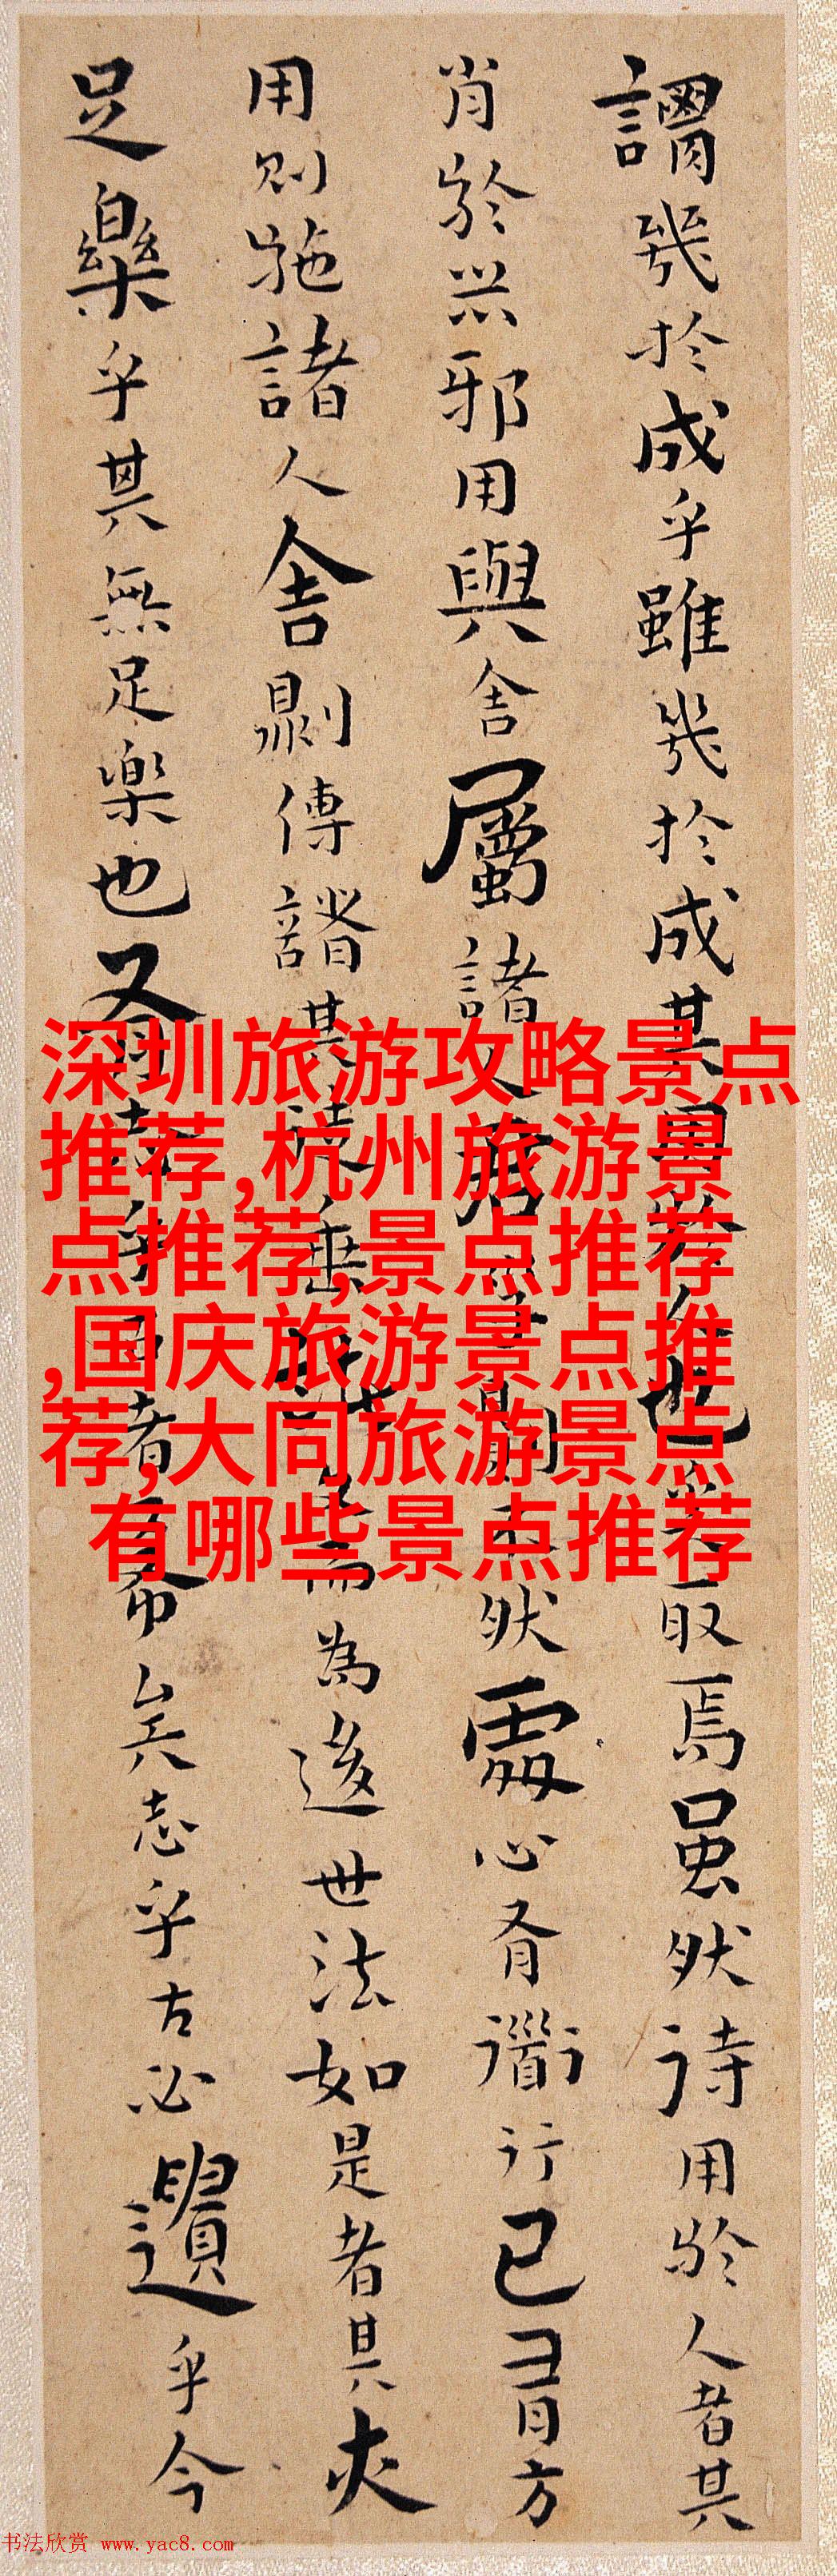 謂幾於成乎雖幾於成其用於人也奚取焉雖然待用於人者其
肖於器邪用與舍屬諸人君子則不然處心有道行己有方
用則施諸人舍則傳諸其徒垂諸文而為後世法如是者其亦
足樂乎其無足樂也有志乎古者希矣志乎古必遺乎今
深圳旅游攻略景点
推荐,杭州旅游景
点推荐,景点推荐
,国庆旅游景点推
荐,大同旅游景点
有哪些景点推荐
书法欣赏 www.yac8.com